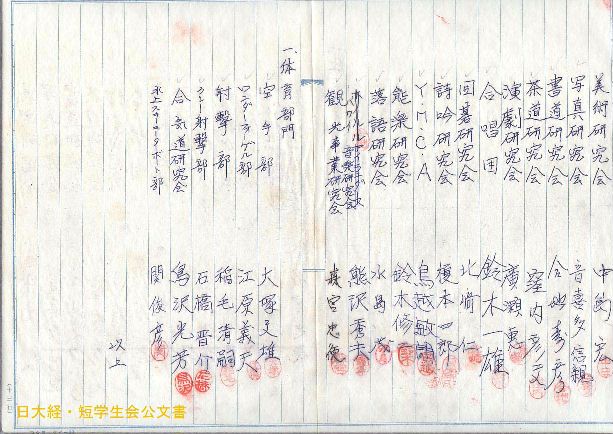 美術研究会 中
写真研究会 音喜多信親
書道研究会
茶道研究会 窪内彦文
演劇研究会 廣瀬恵
合唱団 鈴木一雄
囲碁研究会 北崎仁
詩吟研究会 榎本四郎
Y・M・C・A 鳥越敏
能楽研究会 鈴木修
落語研究会 水島茂
ハワイ音楽研究会 熊沢秀夫
観光事業研究会 宮忠俊
一、体育部門
空手部 大塚文雄
ワンダーフォーゲル部 江原義夫
射撃部 稲毛清嗣
クレー射撃部 石橋晋介
合気道研究会 鳥沢光芳
水上スクーターボート部 関俊彦
以上
日大経・短学生会公文書